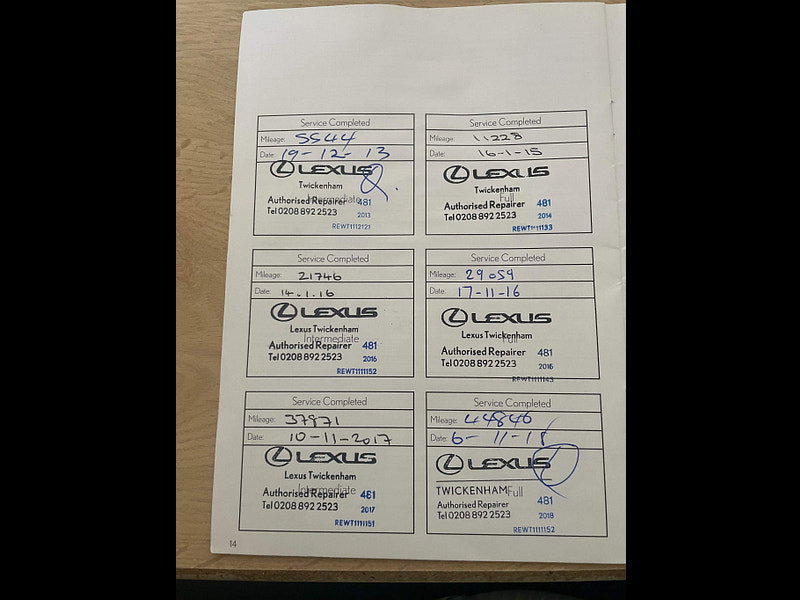 Service Completed
Mileage: 5544
Date: 19-12-13
LEXUS
Twickenham
Intermediate
Authorised Repairer 481
Tel 0208 892 2523 2013
REWT1112121
Service Completed
Mileage: 11228
Date: 16-1-15
LEXUS
Twickenham
Full
Authorised Repairer 481
Tel 0208 892 2523 2014
REWT1111133
Service Completed
Mileage: 21746
Date: 14.1.16
LEXUS
Lexus Twickenham
Intermediate
Authorised Repairer 481
Tel 0208 892 2523 2016
REWT1111152
Service Completed
Mileage: 29059
Date: 17-11-16
LEXUS
Lexus Twickenham
Full
Authorised Repairer 481
Tel 0208 892 2523 2016
REWT1111143
Service Completed
Mileage: 37971
Date: 10-11-2017
LEXUS
Lexus Twickenham
Intermediate
Authorised Repairer 481
Tel 0208 892 2523 2017
REWT1111151
Service Completed
Mileage: 44846
Date: 6-11-18
LEXUS
TWICKENHAM Full
Authorised Repairer 481
Tel 0208 892 2523 2018
REWT1111152
14